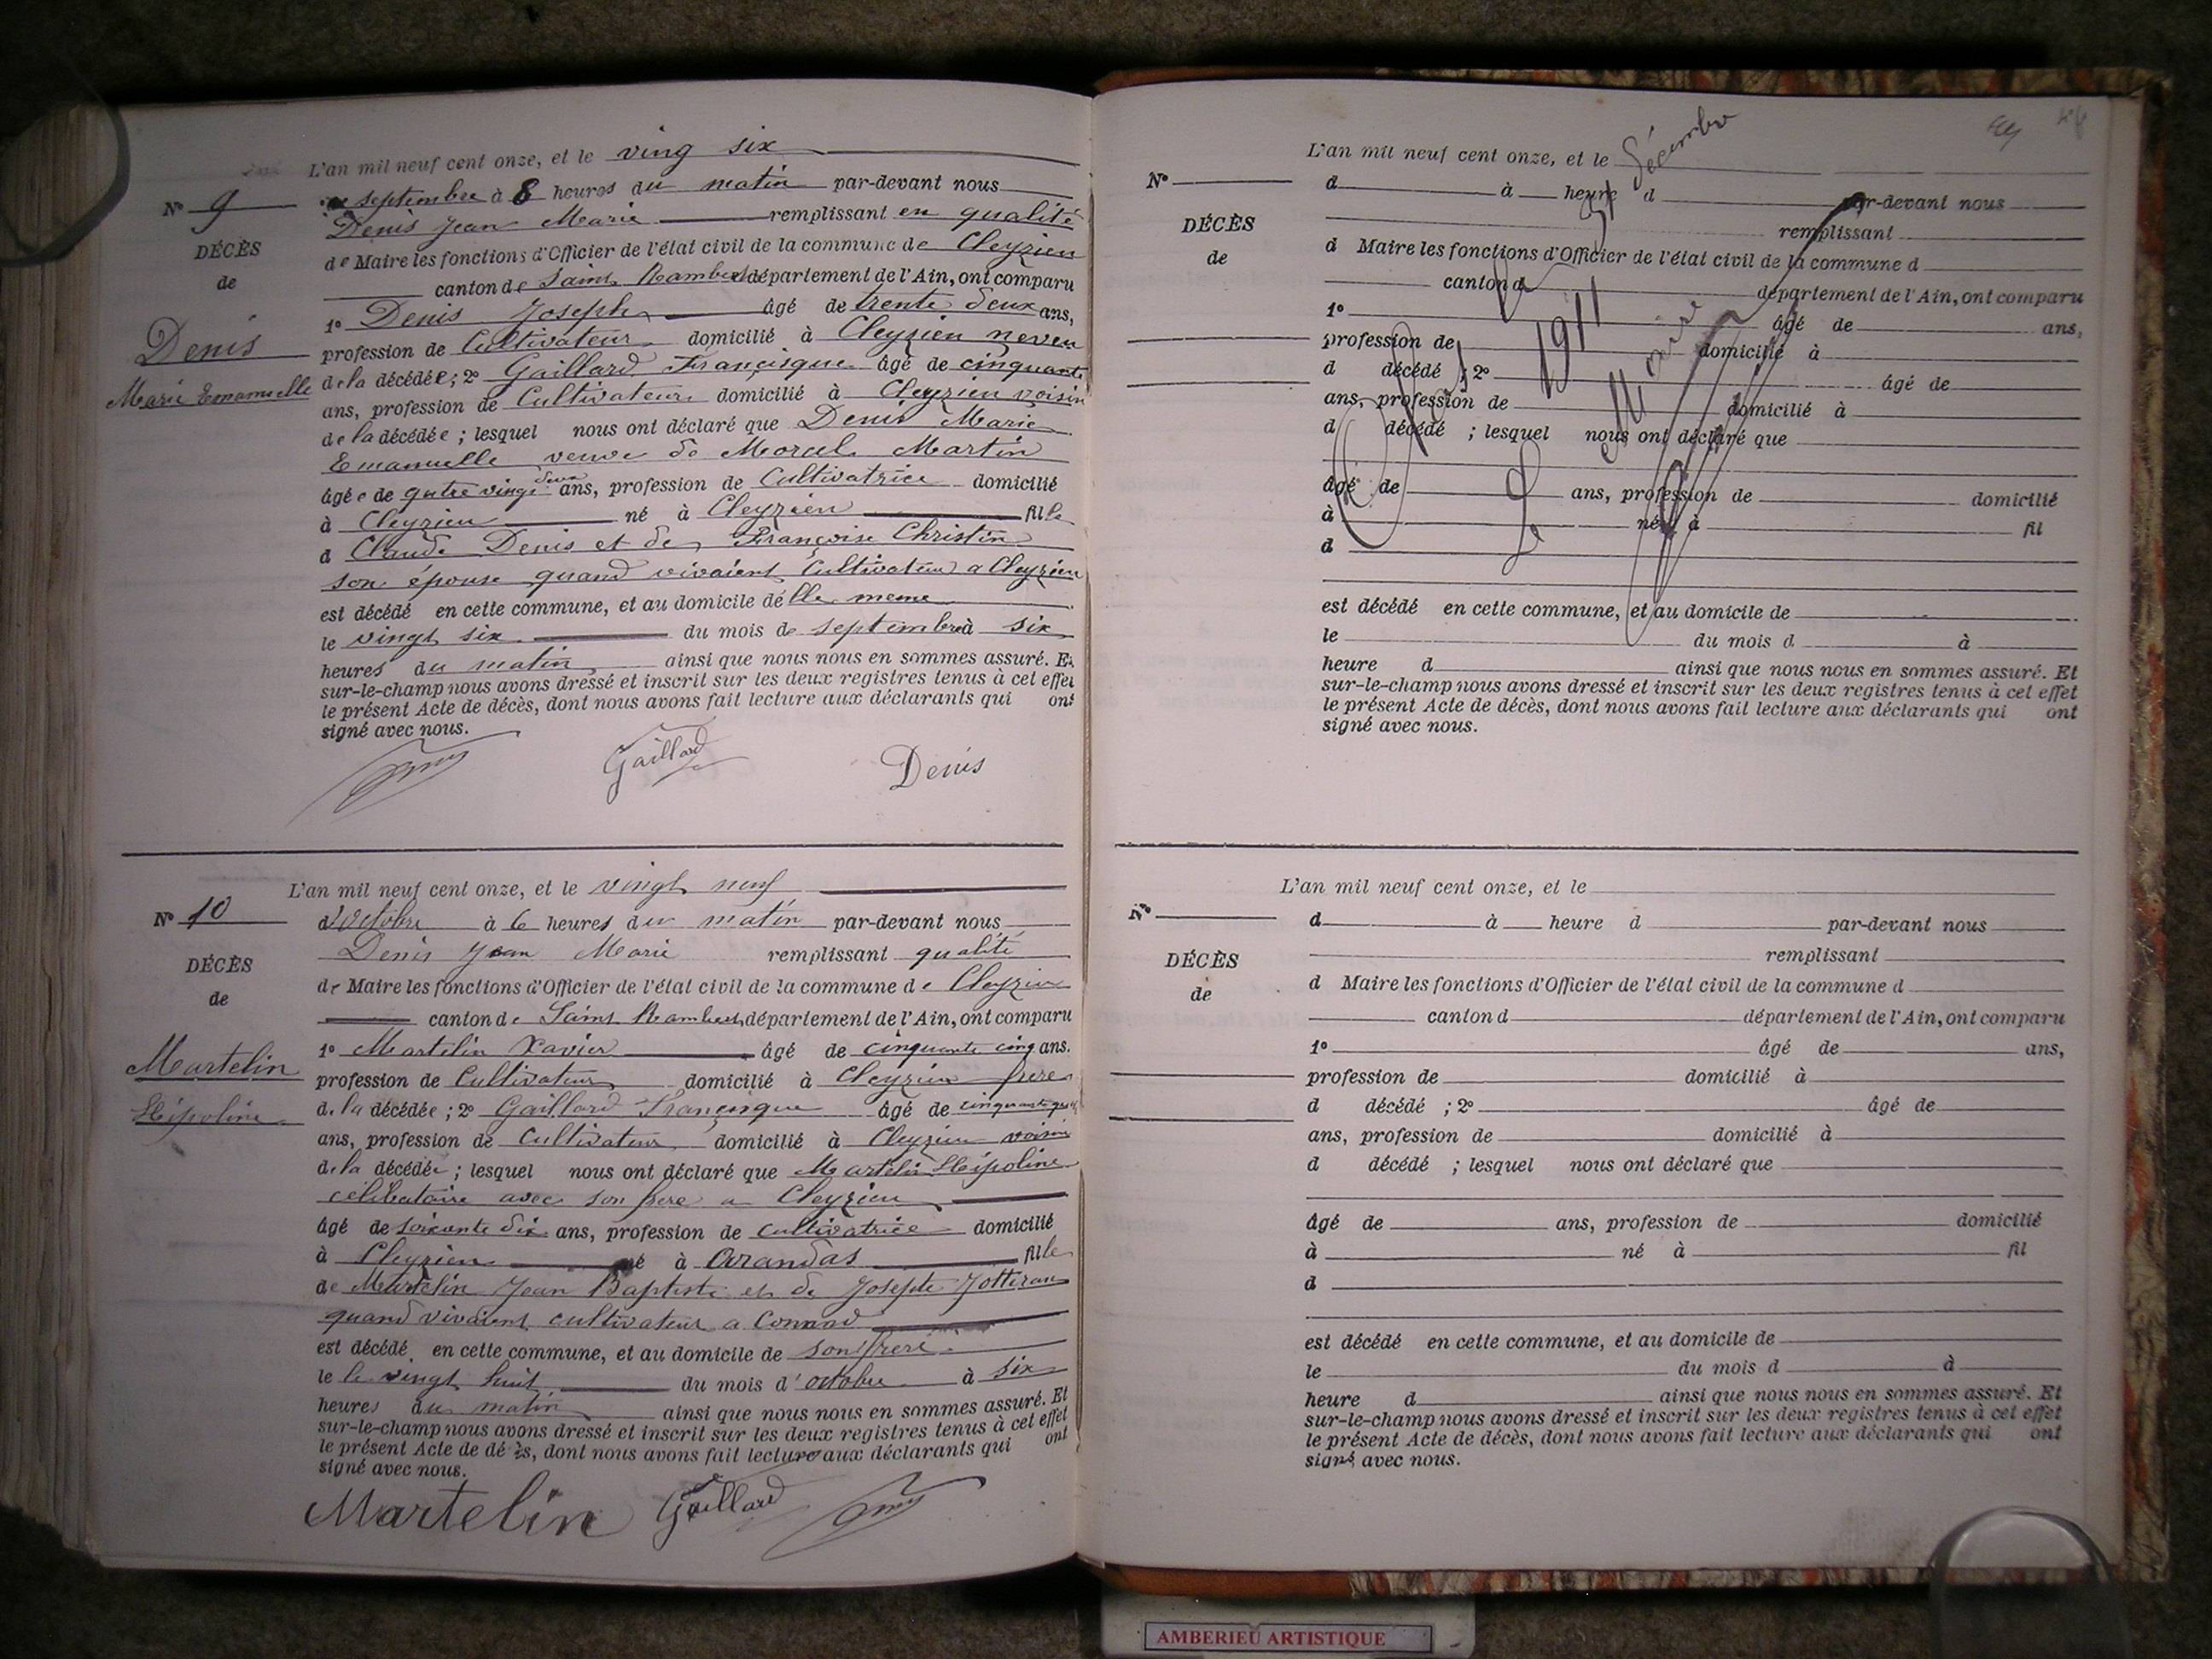 L'an mil neuf cent onze, et le ving six
septembre à 8 heures du matin par-devant nous
Nº 9
Denis Jean Marie remplissant en qualité
DÉCÈS
de Maire les fonctions d'Officier de l'état civil de la commune de Cleyzieu
de
canton de Saint Rambert département de l'Ain, ont comparu
1º Denis Joseph âgé de trente deux ans,
Denis
profession de Cultivateur domicilié à Cleyzieu neveu
Marie Emanuelle
de la décédée; 2º Gaillard Francisque âgé de cinquante
ans, profession de Cultivateur domicilié à Cleyzieu voisin
de la décédée ; lesquel nous ont déclaré que Denis Marie
Emanuelle veuve de Morcel Martin
âgée de qutre vingt deux ans, profession de Cultivatrice domicilié
à Cleyzieu né à Cleyzieu fille
d Claude Denis et de Françoise Christin
son épouse quand vivaient Cultivateur a Cleyzieu
est décédé en cette commune, et au domicile delle meme
le vingt six du mois de septembre à six
heures du matin ainsi que nous nous en sommes assuré. Et
sur-le-champ nous avons dressé et inscrit sur les deux registres tenus à cet effet
le présent Acte de décès, dont nous avons fait lecture aux déclarants qui ont
signé avec nous.
Gaillard Denis
L'an mil neuf cent onze, et le vingt neuf
Nº 10
d'Octobre à 6 heures du matin par-devant nous
Denis Jean Marie remplissant qualité
DÉCÈS
de Maire les fonctions d'Officier de l'état civil de la commune de Cleyzieu
de
canton de Saint Rambert département de l'Ain, ont comparu
1º Martelin Xavier âgé de cinquante cinq ans.
Martelin
profession de Cultivateur domicilié à Cleyzieu frere
Hipoline
de la décédée ; 2º Gaillard Francisque âgé de
ans, profession de Cultivateur domicilié à Cleyzieu voisin
de la décédée ; lesquel nous ont déclaré que Martelin Hipoline
celibataire avec son frere a Cleyzieu
âgé de soixante dix ans, profession de cultivatrice domicilié
à Cleyzieu né à Arandas fille
de Martelin Jean Baptiste et de Josephte
quand vivaient cultivateur a
est décédé en cette commune, et au domicile de son frere
le le vingt huit du mois d'octobre à six
heures du matin ainsi que nous nous en sommes assuré. Et
sur-le-champ nous avons dressé et inscrit sur les deux registres tenus à cet effet
le présent Acte de décès, dont nous avons fait lecture aux déclarants qui ont
signé avec nous.
Martelin Gaillard
L'an mil neuf cent onze, et le
Nº
d à heure d par-devant nous
remplissant
DÉCÈS
d Maire les fonctions d'Officier de l'état civil de la commune d
de
canton d département de l'Ain, ont comparu
1º âgé de ans,
profession de domicilié à
d décédé ; 2º âgé de
ans, profession de domicilié à
d décédé ; lesquel nous ont déclaré que
âgé de ans, profession de domicilié
à né à fil
d
est décédé en cette commune, et au domicile de
le du mois d à
heure d ainsi que nous nous en sommes assuré. Et
sur-le-champ nous avons dressé et inscrit sur les deux registres tenus à cet effet
le présent Acte de décès, dont nous avons fait lecture aux déclarants qui ont
signé avec nous.
Clos le 31 décembre
1911
Le Maire
L'an mil neuf cent onze, et le
Nº
d à heure d par-devant nous
remplissant
DÉCÈS
d Maire les fonctions d'Officier de l'état civil de la commune d
de
canton d département de l'Ain, ont comparu
1º âgé de ans,
profession de domicilié à
d décédé ; 2º âgé de
ans, profession de domicilié à
d décédé ; lesquel nous ont déclaré que
âgé de ans, profession de domicilié
à né à fil
d
est décédé en cette commune, et au domicile de
le du mois d à
heure d ainsi que nous nous en sommes assuré. Et
sur-le-champ nous avons dressé et inscrit sur les deux registres tenus à cet effet
le présent Acte de décès, dont nous avons fait lecture aux déclarants qui ont
signé avec nous.
AMBERIEU ARTISTIQUE